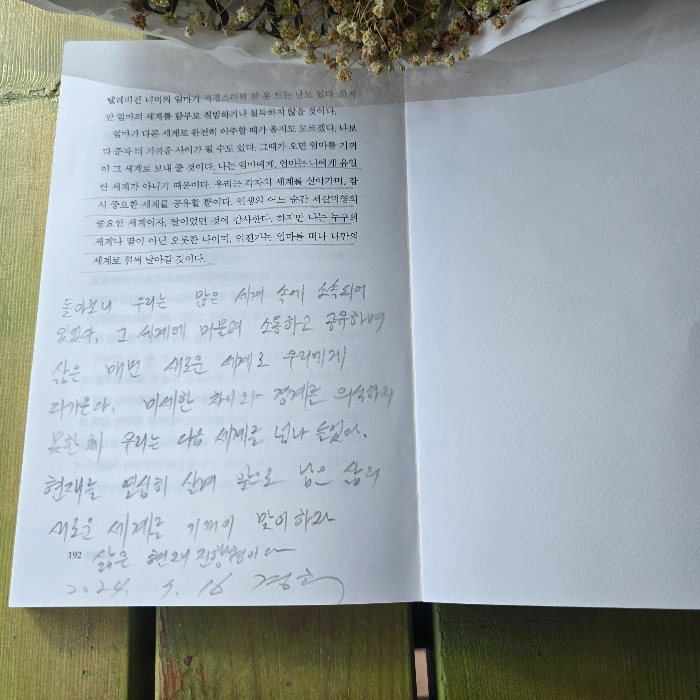 텔레비전 너머의 엄마가 걱정스러워 잠 못 드는 날도 있다. 하지
만 엄마의 세계를 함부로 침범하거나 설득하지 않을 것이다.
엄마가 다른 세계로 완전히 이주할 때가 올지도 모르겠다. 나보
다 준파 더 가까운 사이가 될 수도 있다. 그때가 오면 엄마를 기꺼
이 그 세계로 보내 줄 것이다. 나는 엄마에게, 엄마는 나에게 유일
한 세계가 아니기 때문이다. 우리는 각자의 세계를 살아가며, 잠
시 중요한 세계를 공유할 뿐이다. 인생의 어느 순간 서로
중요한 세계이자, 딸이었던 것에 감사한다. 하지만 나는 누구의
세계나 딸이 아닌 오롯한 나이며, 언젠가는 엄마를 떠나 나만의
세계로 힘써 날아갈 것이다.
돌아보니 우리는 많은 세계 속에 소속되어
있었구, 그 세계에 머물며 소통하고 공유하며
삶은 매번 새로운 세계로 우리에게
다가온다. 미세한 차이와 경계를 의식하지
못한 채 우리는 다음 세계를 넘나 들었다.
현재를 열심히 살며 앞으로 남은 삶의
새로운 세계를 기꺼이 맞이하라
192 삶은 현재 진행형이다
2024. 9. 16